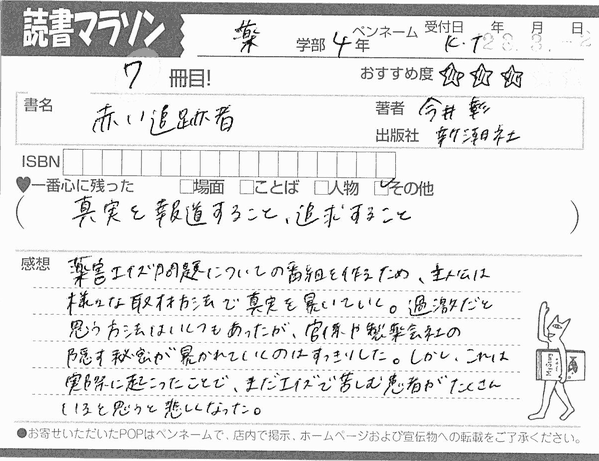 読書マラソン
薬 学部 4年 ペンネーム K.T 受付日 年 月 日
23.3.-2
7 冊目! おすすめ度 ☆☆☆
書名 赤い追跡者
著者 今井彰
出版社 新潮社
ISBN
♥一番心に残った □場面 □ことば □人物 ☑その他
(真実を報道すること、追求すること)
感想 薬害エイズ問題についての番組を作るため、主人公は
様々な取材方法で真実を暴いていく。過激だと
思う方法はいくつもあったが、官僚や製薬会社の
隠す秘密が暴かれていくのはすっきりした。しかし、これは
実際に起こったことで、まだエイズで苦しむ患者がたくさん
いると思うと悲しくなった。
●お寄せいただいたPOPはペンネームで、店内で掲示、ホームページおよび宣伝物への転載をご了承ください。